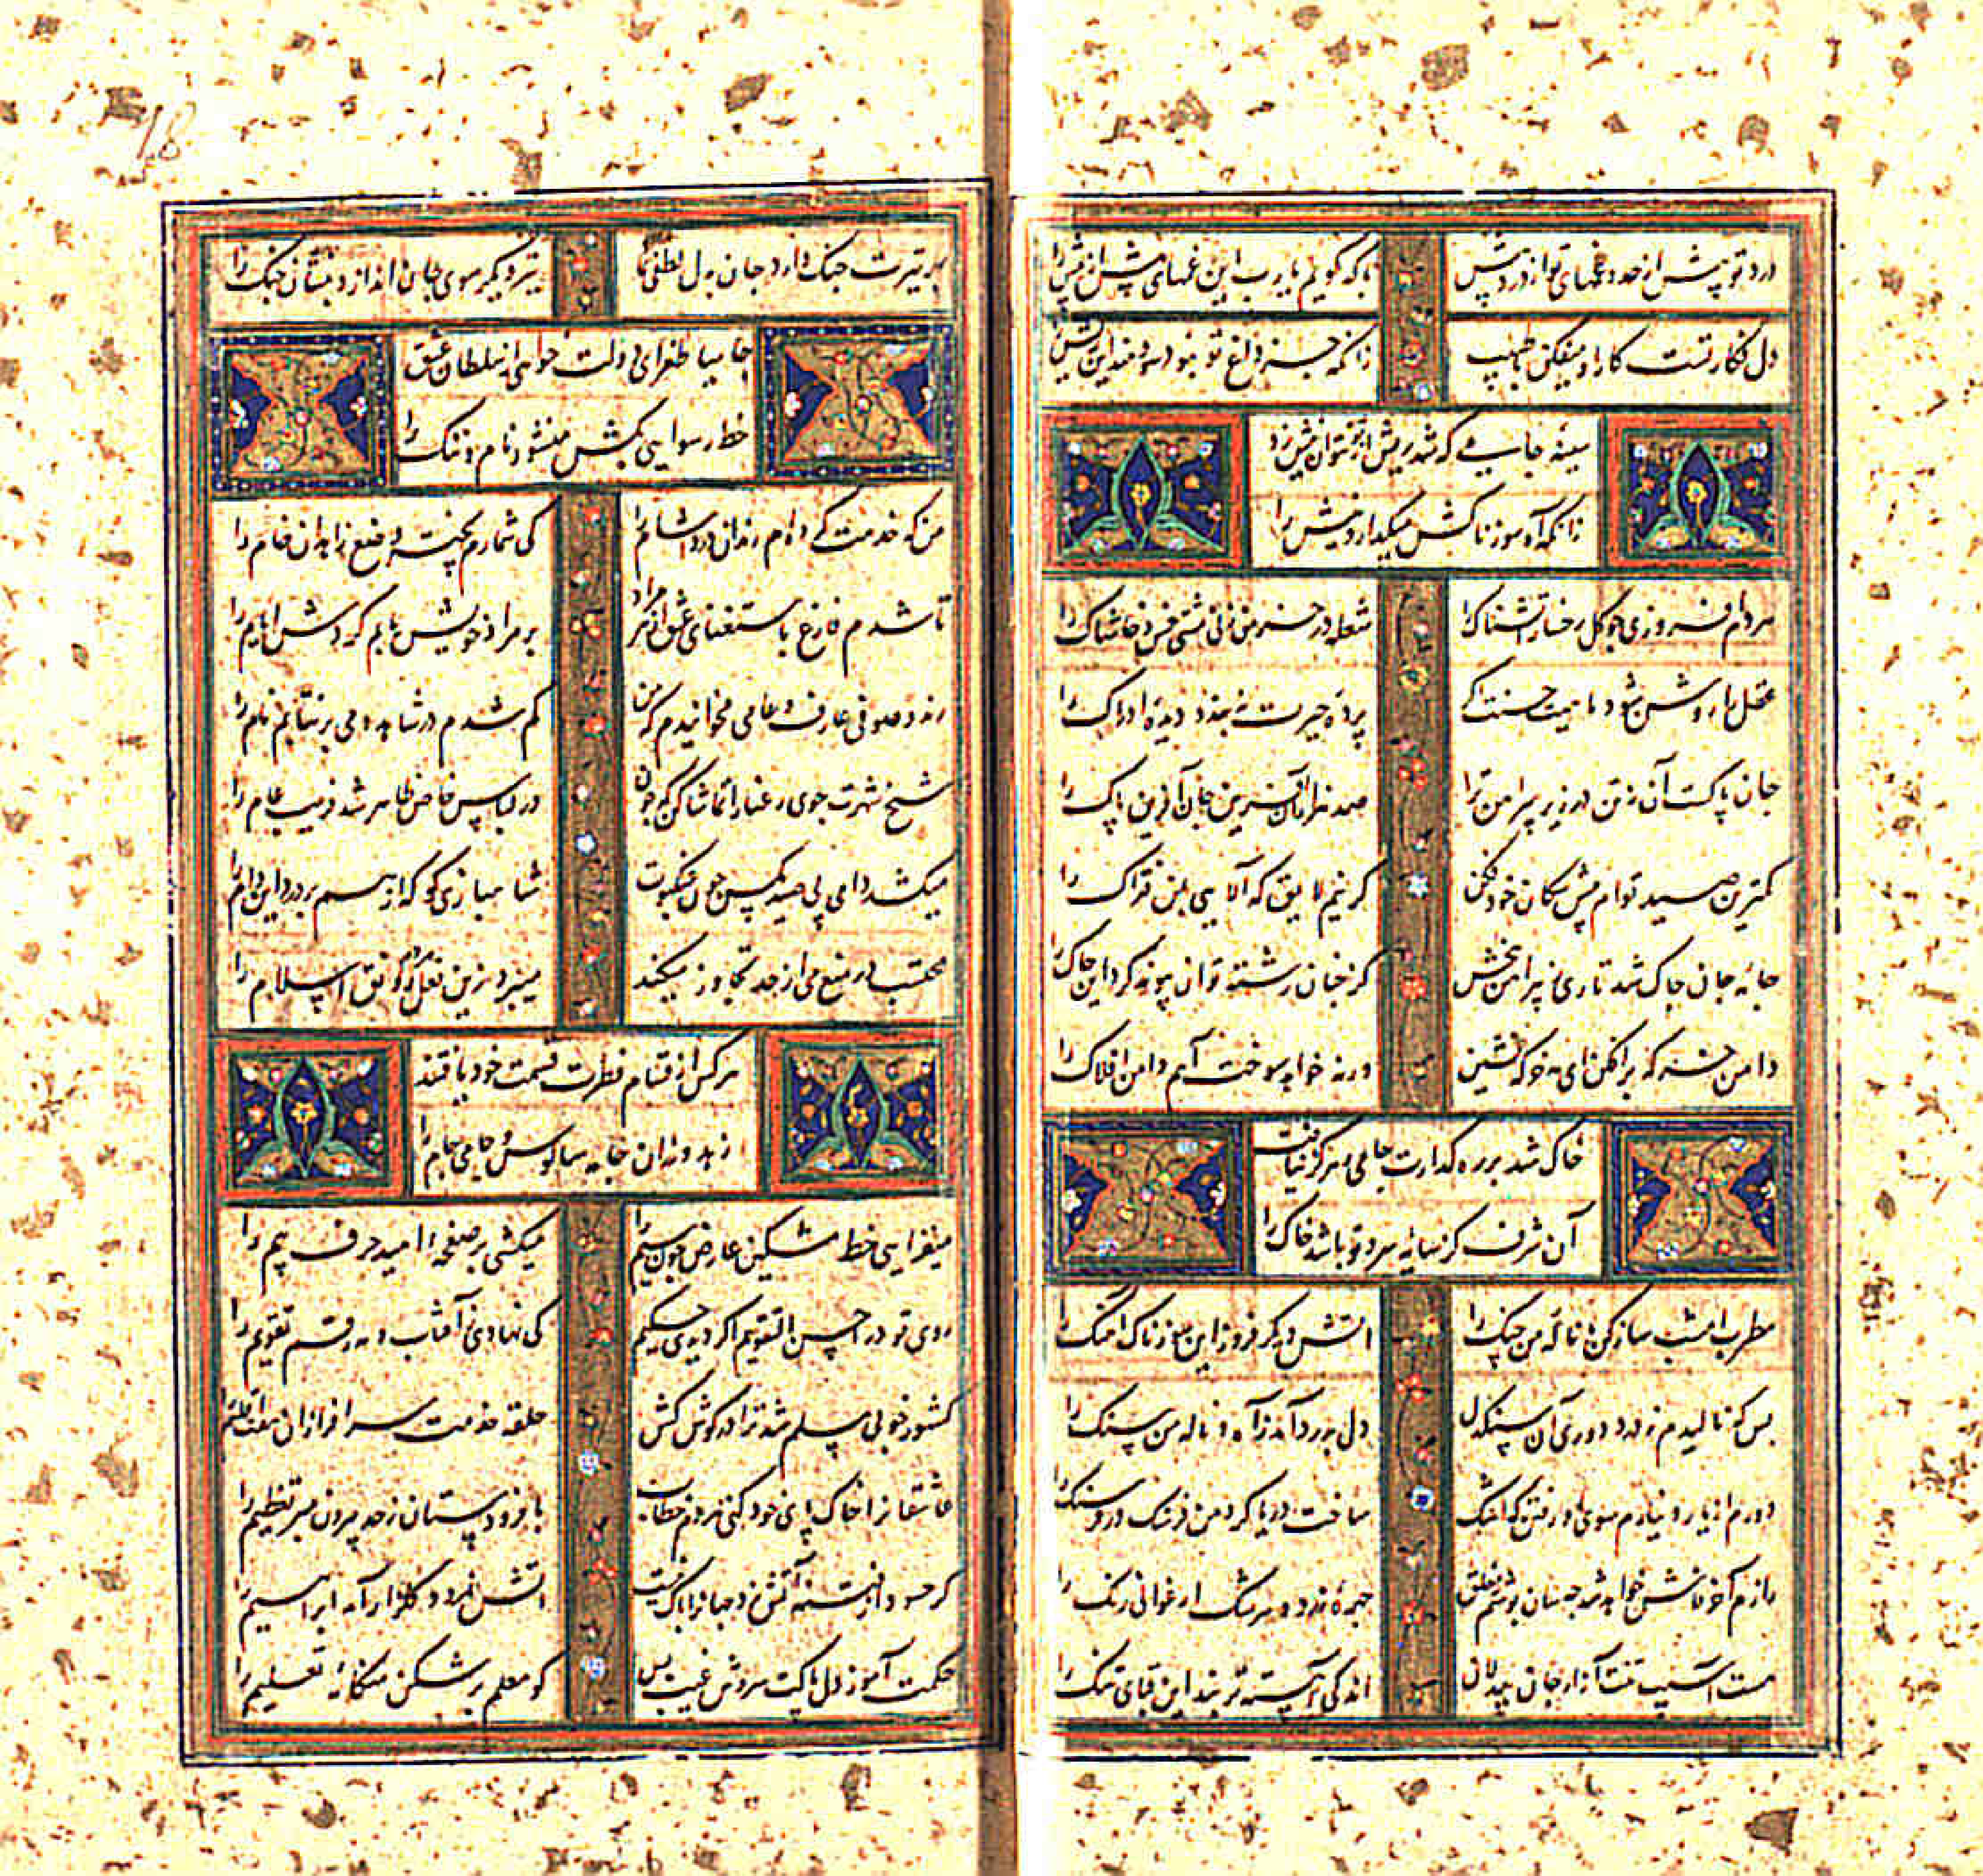 درد تو بیش از حد و غمهای تو از درد بیش
با که گویم یا رب این غمهای بیش از بیش را
دل فکار تست کار او میفکن با طبیب
زانکه جز داغ تو نبود سودمند این ریش را
سینهٔ جامی که شد ریش از نتوان نیش زد
زانکه آه سوزناکش میکدازد نیش را
هر دم افروزی چو کل رخسار آتشناک را
شعله در خرمن زنی مشتی خس و خاشاک را
عقل را روشن شود ماهیت حسنت اکر
پردهٔ حیرت نبندد دیدهٔ ادراک را
جان پاکست آن نه تن در زیر پیراهن ترا
صد هزاران آفرین جان آفرین پاک را
کمترین صید توام پیش سکان خود فکن
کر نیم لایق که آلایی بمن فتراک را
جامهٔ جان چاک شد تاری ز پیراهن ببخش
کز چنان رشته توان پیوند کرد این چاک را
دامن خرکه برافکن ای مه خرکه نشین
ورنه خواهد سوخت آهم دامن افلاک را
خاک شد بر ره کذارت جامی و هرکز نیافت
آن شرف کز سایهٔ سرو تو باشد خاک را
مطرب امشب ساز کن با نالهٔ من چنک را
آتش دیکر فروز این سوزناک آهنک را
بس که نالیدم ز درد دوری آن سنکدل
دل بدرد آمد ز آه و نالهٔ من سنک را
دورم از یار و نیارم سوی او رفتن که اشک
ساخت دریا کرد من فرسنک در فرسنک را
رازم آخر فاش خواهد شد چه سان پوشم ز خلق
چهرهٔ زرد و سرشک ارغوانی رنک را
هست آسیب تنت آزار جان بیدلان
اندکی آهسته تر بند این قبای تنک را
هر تیرت جنک دارد جان و دل لطفی نما
تیر دیکر سوی جان انداز و بنشان جنک را
جامیا طغرای دولت خواهی از سلطان عشق
خط رسوایی بکش منشور نام و ننک را
من که خدمت کرده ام رندان درد آشام را
کی شمارم پخته وضع زاهدان خام را
تا شدم فارغ باستغنای عشق از هر مراد
بر مراد خویش یابم کردش ایام را
رند و صوفی عارف و عامی مخوانیدم که من
کم شدم در شاهد و می بر نتابم نام را
شیخ شهرت جوی رعنا را تماشا کن که چون
در لباس خاص ظاهر شد فریب عام را
میکشد دامی پی صید مکس چون عنکبوت
شاهبازی کو که از هم بردرد این دام را
محتسب در منع می از حد تجاوز میکند
میبرد زین فعل رونق اسلام را
هرکس از قسام فطرت قسمت خود یافتند
زهد ورزان جامهٔ سالوس و جامی جام را
میفزایی خط مشکین عارض چون سیم را
میکشی بر صفحهٔ امید حرف بیم را
روی تو در احسن التقویم اکر دیدی حکیم
کی نهادی ز آفتاب و مه رقم تقویم را
کشور خوبی مسلم شد ترا در کوش کش
حلقهٔ خدمت سرافرازان هفت اقلیم را
عاشقانرا خاک پای خود کنی نزدم خطاب
با فرودستان ز حد بیرون مبر تعظیم را
کر حسود از فتنه آتش زد جهانرا باک نیست
آتش نمرود کلزار آمد ابراهیم را
حکمت آموز دل پاکت سروش غیب بس
کو معلم بر شکن هنکامهٔ تعلیم را